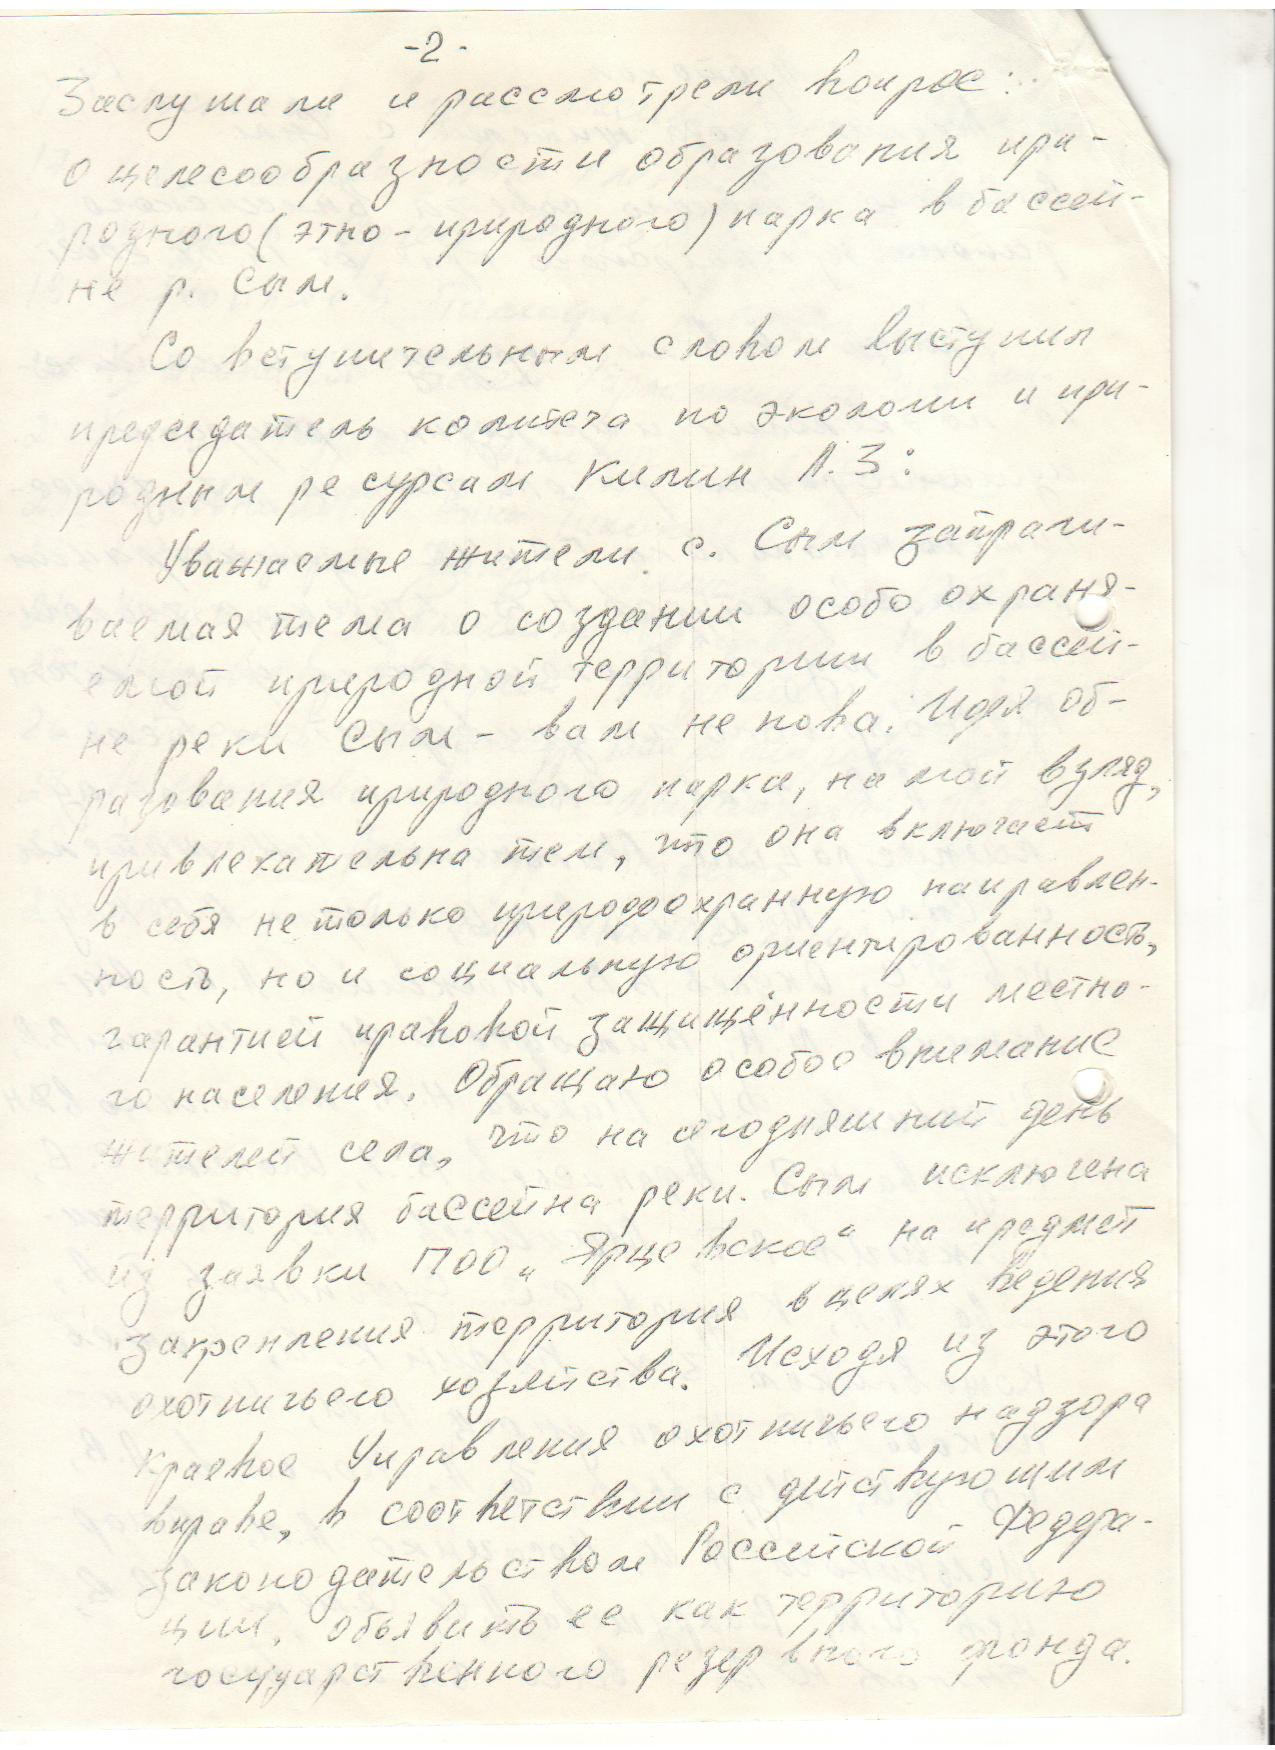 -2-
Заслушали и рассмотрели вопрос:
о целесообразности образования при-
родного (этно-природного) парка в бассей-
не р. Сым.
Со вступительным словом выступил
председатель комитета по экологии и при-
родным ресурсам Килин А.З:
Уважаемые жители с. Сым затраги-
ваемая тема о создании особо охраня-
емой природной территории в бассей-
не реки Сым - вам не нова. Идея об-
разования природного парка, на мой взгляд,
привлекательна тем, что она включает
в себя не только природоохранную направлен-
ность, но и социальную ориентированность,
гарантией правовой защищённости местно-
го населения. Обращаю особое внимание
жителей села, что на сегодняшний день
территория бассейна реки. Сым исключена
из заявки ПОО „Ярцевское" на предмет
закрепления территория в целях ведения
охотничьего хозяйства. Исходя из этого
краевое Управления охотничьего надзора
вправе, в соответствии с действующим
законодательством Российской Федера-
ции, объявить ее как территорию
государственного резервного фонда.